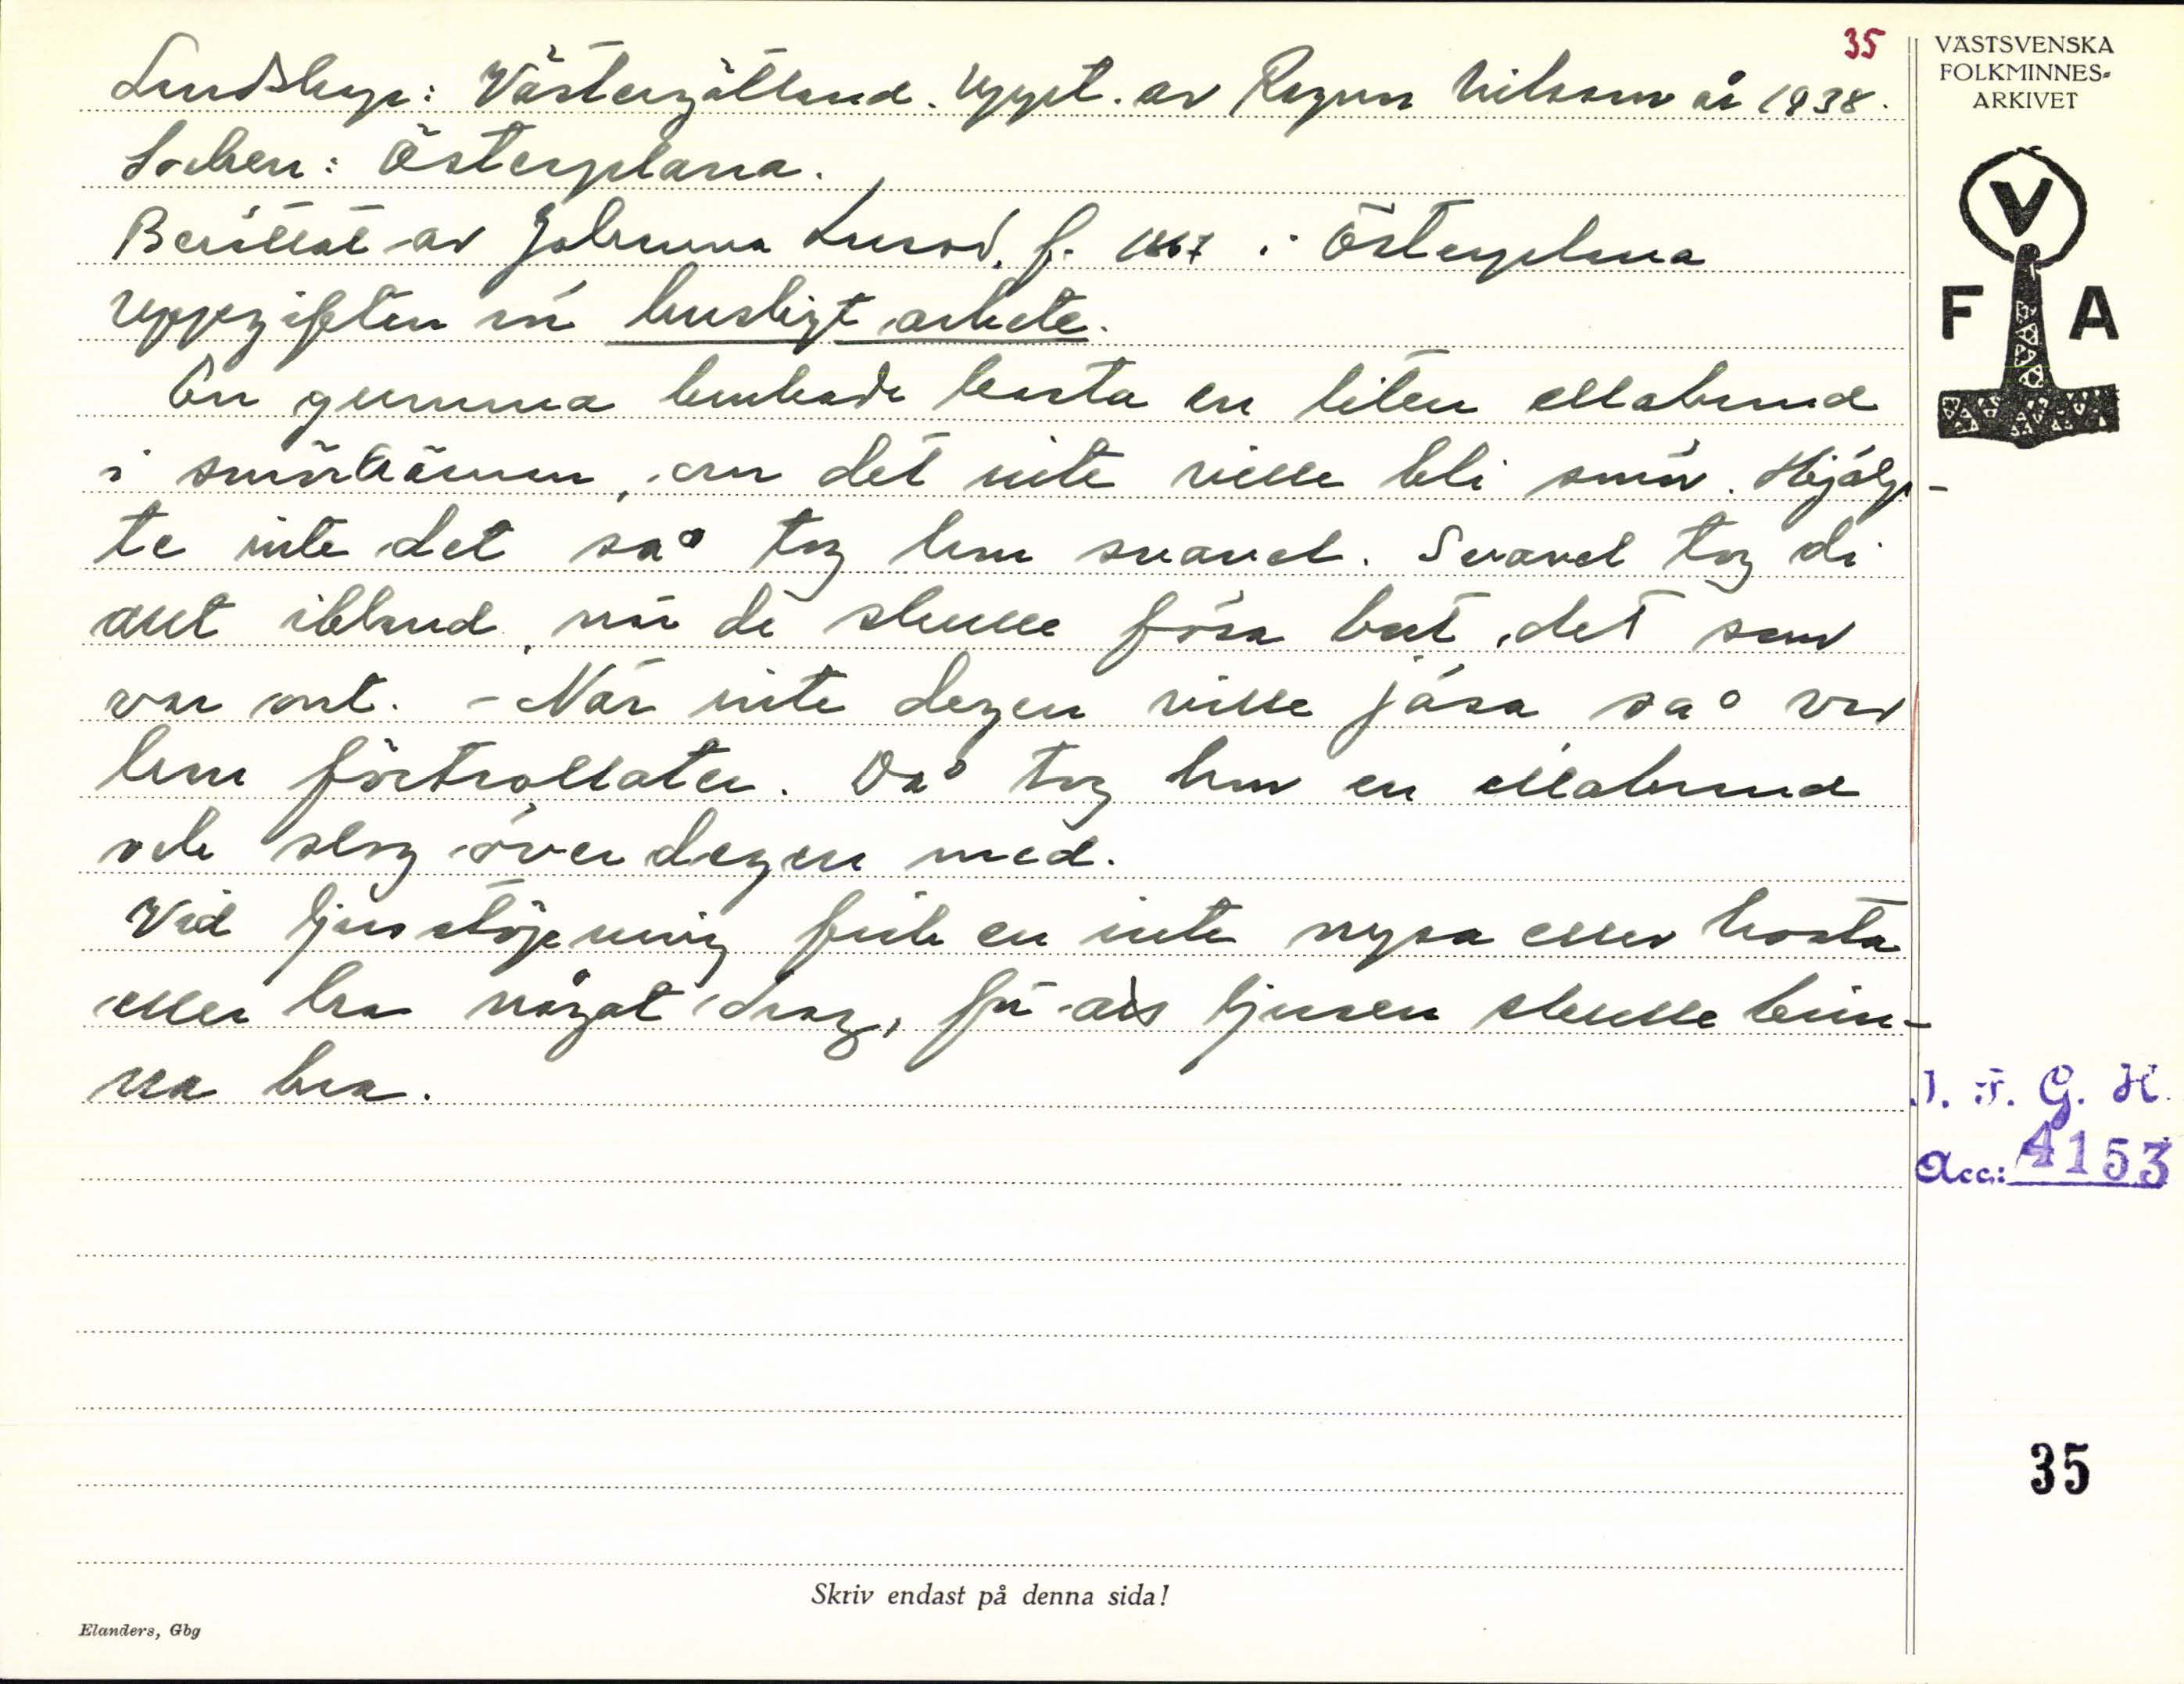 35
Landskap: Västergötland. Uppt. av Ragnar Nilsson år 1938.
Socken: Österplana.
Berättat av Johanna Lund, f. 1867 i Österplana
Uppgiften rör husligt arbete.
En gumma brukade kasta en liten ellabrand
i smörtjärnan, om det inte ville bli smör. Hjälp-
te inte det så tog hon svavel. Svavel tog di
ant ibland, när de skulle föra bort det som
var ont. - När inte degen ville jäsa så var
hon förtrollaten. Då tog hon en ellabrand
och slog över degen med.
Vid ljusstöpning fick en inte nysa eller hosta
eller ha något drag, för att ljusen skulle brin-
na bra.
VÄSTSVENSKA
FOLKMINNES-
ARKIVET
V
F A
I. F. G. H.
Acc: 4153
35
Skriv endast på denna sida!
Elanders, Gbg